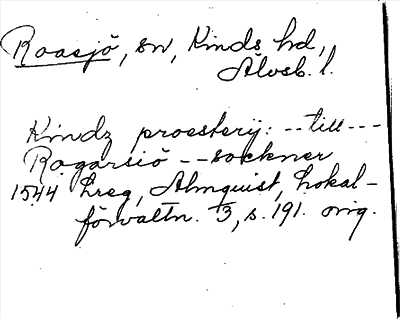 Roasjö, sn, Kinds hd,
Älvsb. l.
Kindz proesterij: -- till ---
Rogarsiö -- sockner
1544 Lreg, Almquist, Lokal-
förvaltn. 73, s. 191. orig.